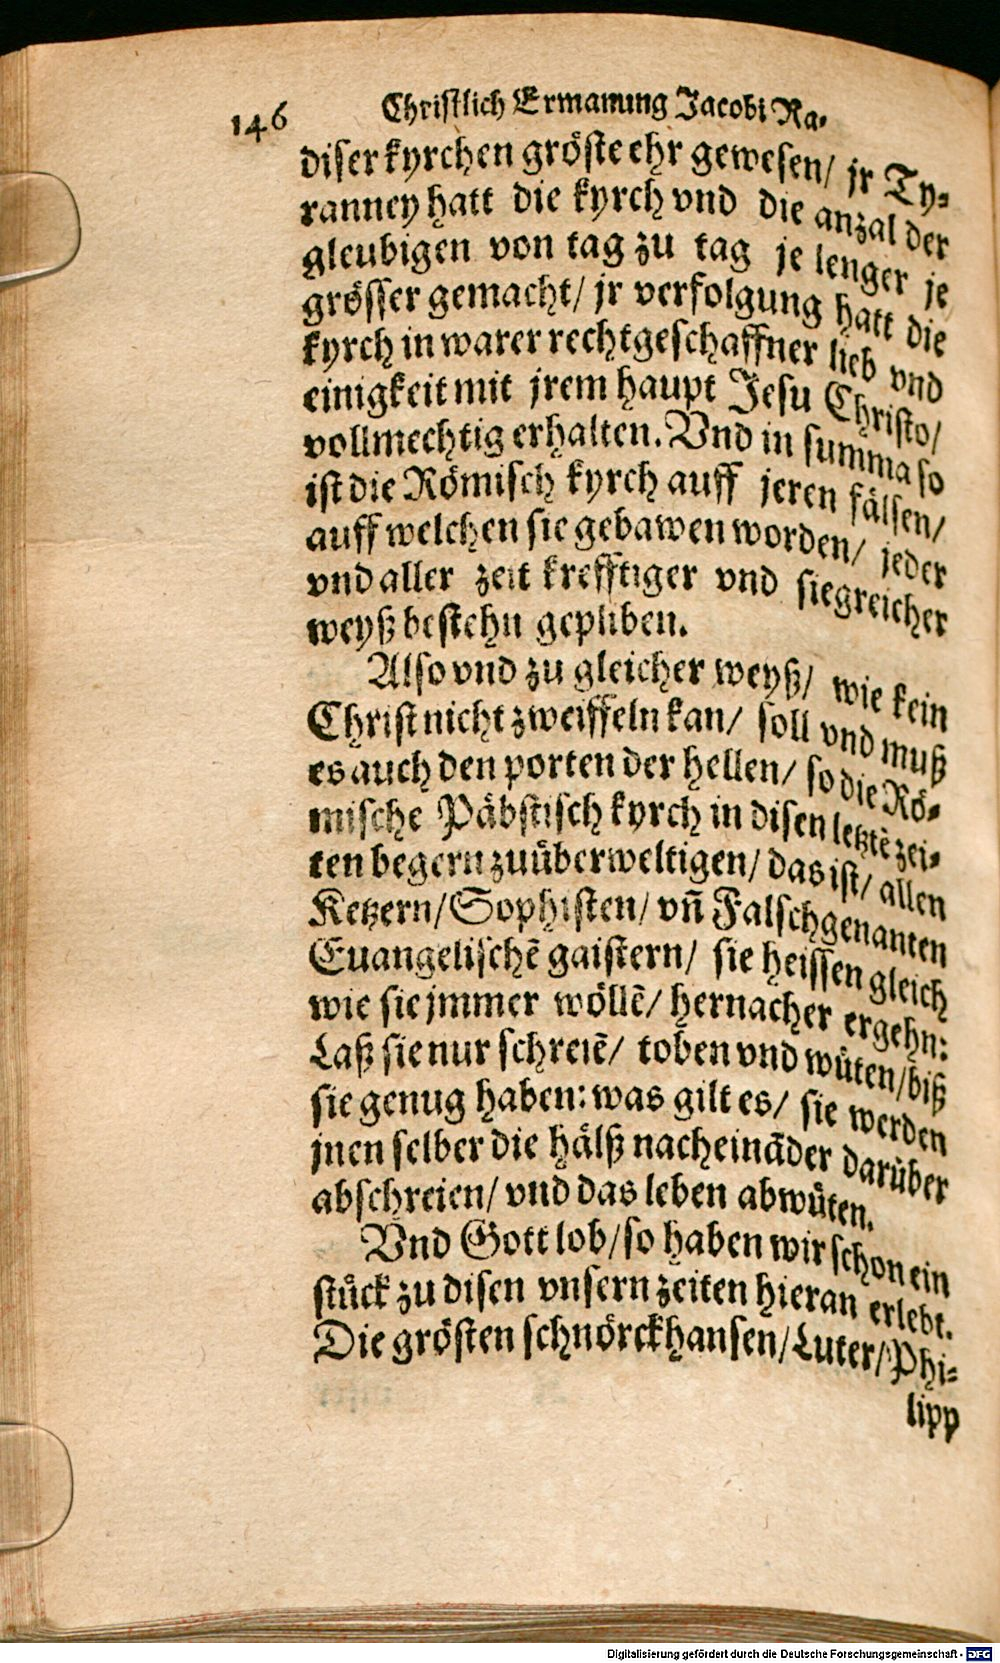 146
Christlich Ermanung Jacobi Ra-
diser kyrchen gröste ehr gewesen/ jr Ty-
ranney hatt die kyrch vnd die anzal der
gleubigen von tag zu tag je lenger je
grösser gemacht/ jr verfolgung hatt die
kyrch in warer rechtgeschaffner lieb vnd
einigkeit mit jrem haupt Jesu Christo/
vollmechtig erhalten. Vnd in summa so
ist die Römisch kyrch auff jeren fälsen/
auff welchen sie gebawen worden/ jeder
vnd aller zeit krefftiger vnd siegreicher
weyß bestehn gepliben.
Also vnd zu gleicher weyß/ wie kein
Christ nicht zweiffeln kan/ soll vnd muß
es auch den porten der hellen/ so die Rö-
mische Päbstisch kyrch in disen letztẽ zei-
ten begern zuüberweltigen/ das ist/ allen
Ketzern/ Sophisten/ vñ Falschgenanten
Euangelischẽ gaistern/ sie heissen gleich
wie sie jmmer wöllẽ/ hernacher ergehn:
Laß sie nur schreiẽ/ toben vnd wüten/ biß
sie genug haben: was gilt es/ sie werden
jnen selber die hälß nacheinãder darüber
abschreien/ vnd das leben abwüten.
Vnd Gott lob/ so haben wir schon ein
stück zu disen vnsern zeiten hieran erlebt.
Die grösten schnörckhansen/ Luter/ Phi-
lipp
Digitalisierung gefördert durch die Deutsche Forschungsgemeinschaft - DFG